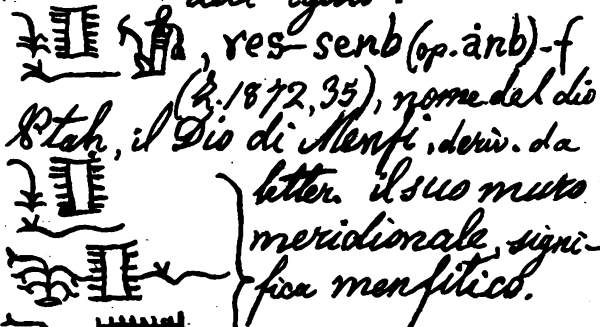 , res-senb (op. ȧnb)-f
(Z. 1872, 35), nome del dio
Ptah, il Dio di Menfi, deriv. da
letter. il suo muro
meridionale, signi-
fica menfitico.